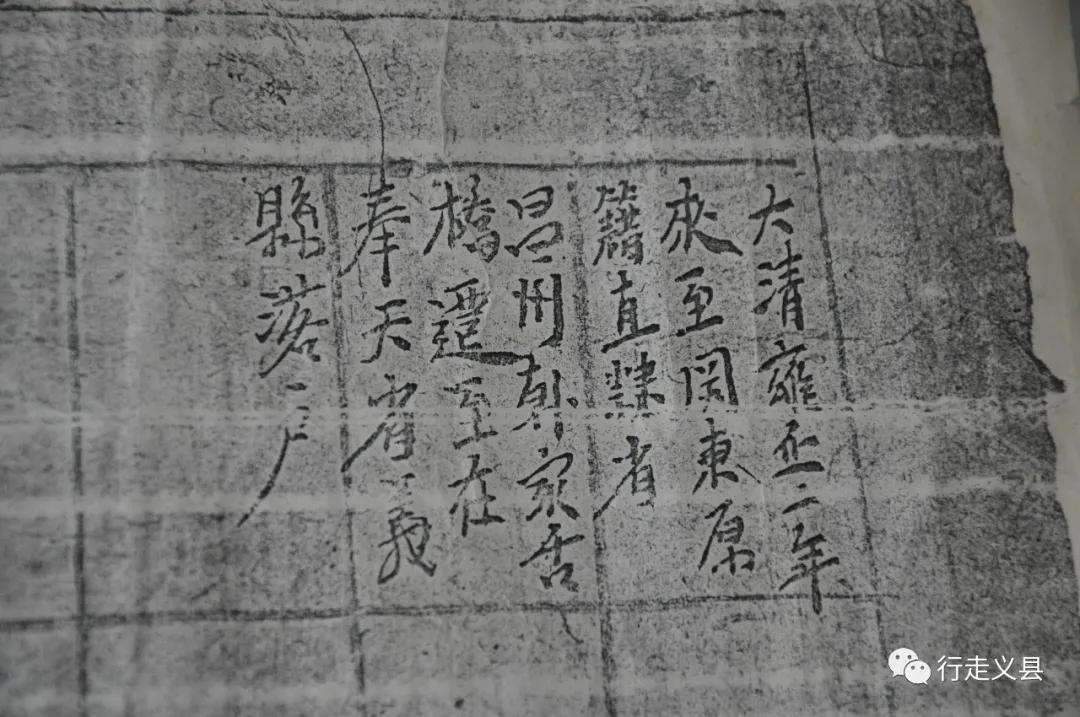 大清雍正二年
来至関東原
籍直隸省
昌州家
橋遷至在
奉天省義
縣落户
行走义县